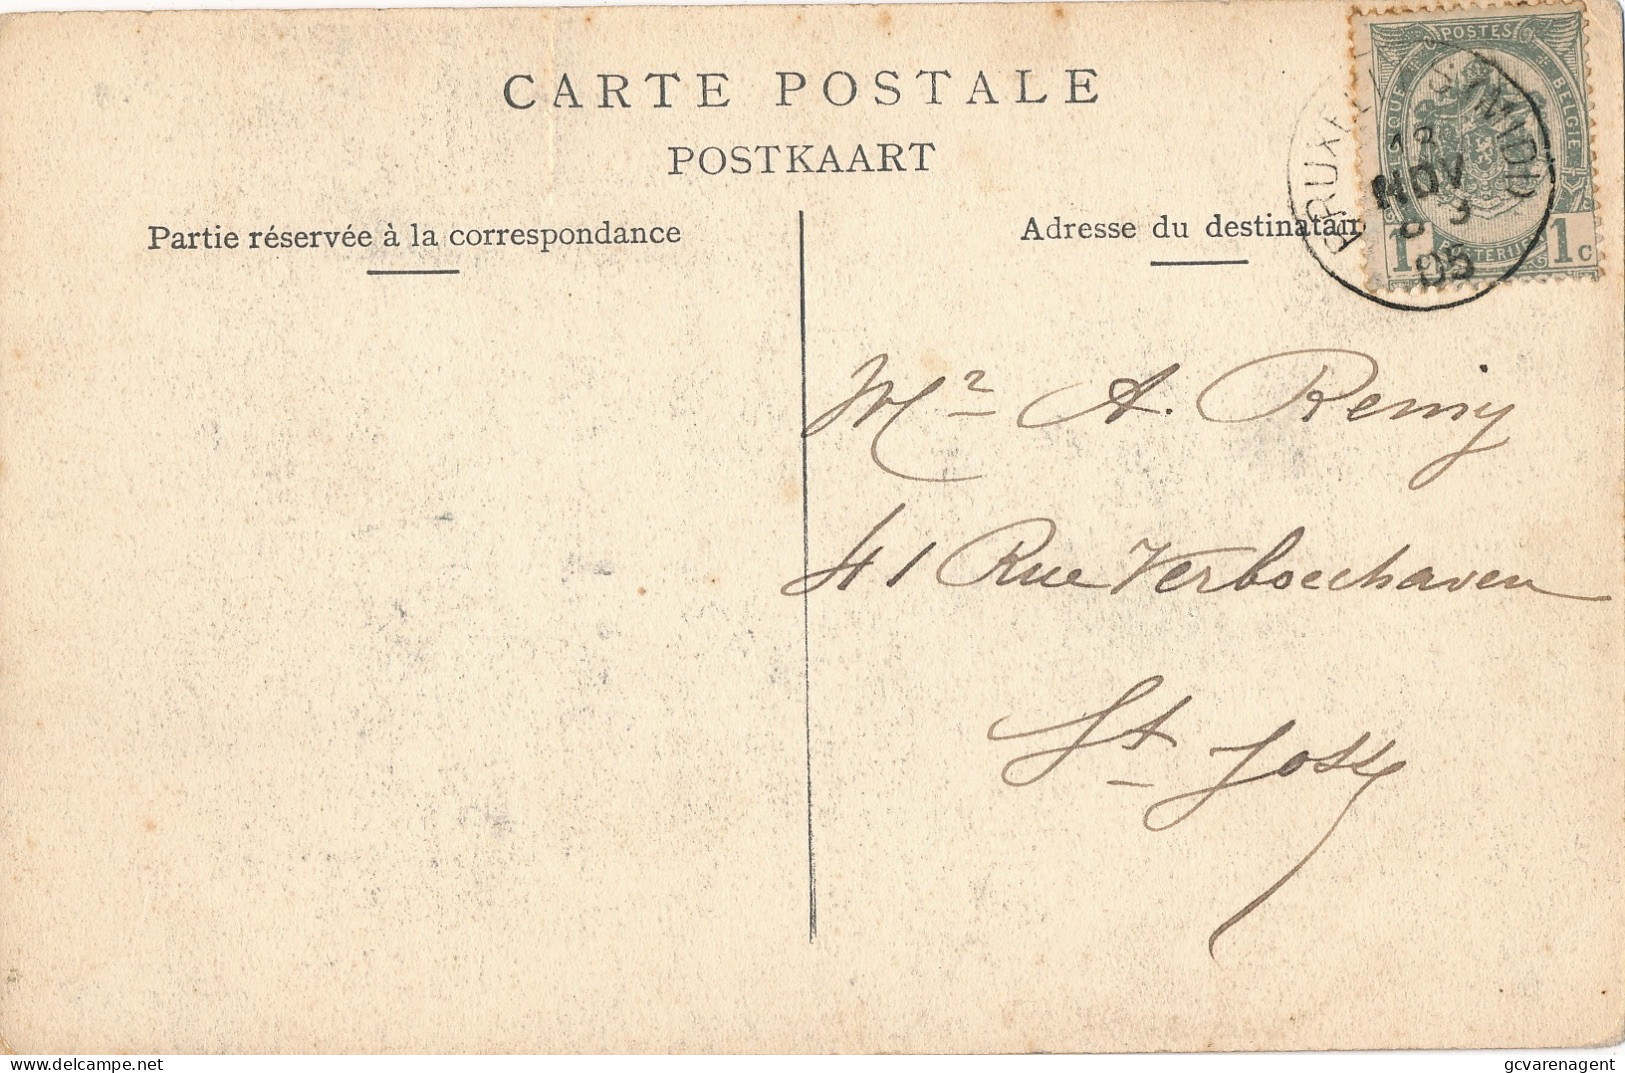 CARTE POSTALE
POSTKAART
Partie réservée à la correspondance
Adresse du destinatair
POSTES
BELGIQUE
BELGIE
POSTERIJEN
1 1c
BRUXELLES (MIDI)
NOV
05
Mr A. Remy
41 Rue Verboeckhaven
St Josse
delcampe.net
gcvarenagent